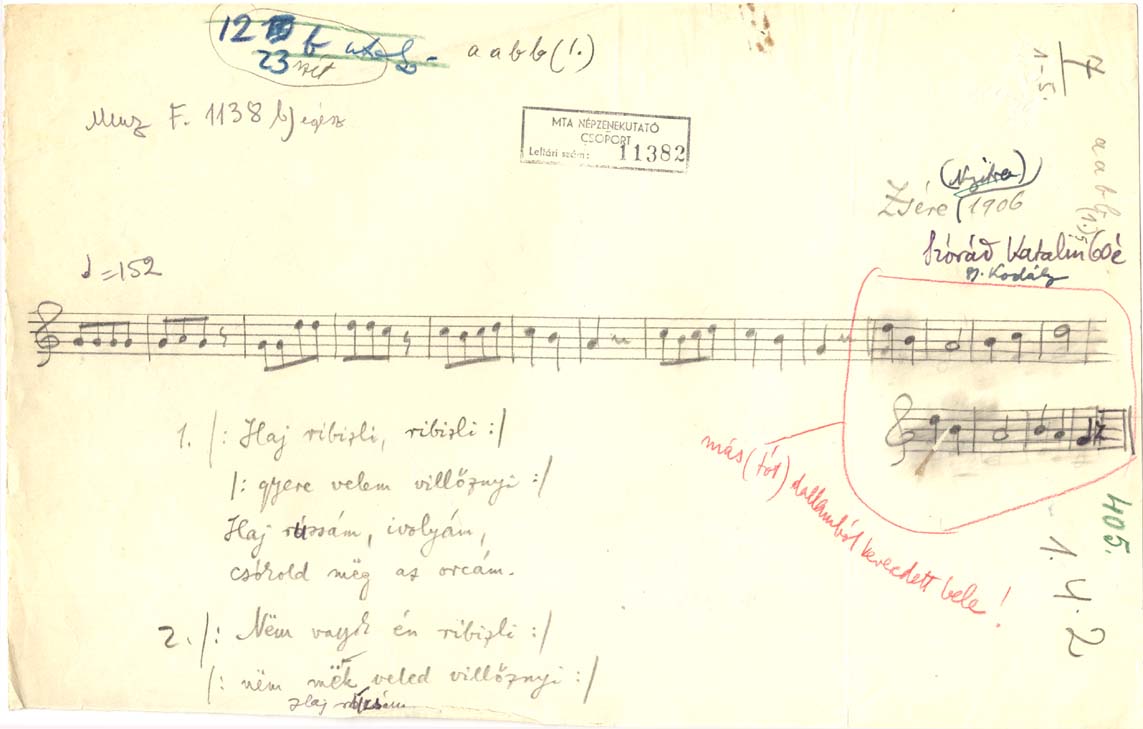 12 b utol-
23
a a b b (1.)
Muz F. 1138 b) egész
MTA NÉPZENEKUTATÓ
CSOPORT
Leltári szám: 11382
1-5.
a a b b (1.)5
(Nyitra)
Zsére 1906
Szórád Katalin 60é
gy. Kodály
♩=152
1. /: Haj ribizli, ribizli :/
/: gyere velem villőznyi :/
Haj rússám, ivolyám,
csókold mëg az orcám.
2. /: Nëm vagyok én ribizli :/
/: nëm mëk veled villőznyi :/
Haj
más (tót) dallamból keveredett bele!
405.
1. 4. 2